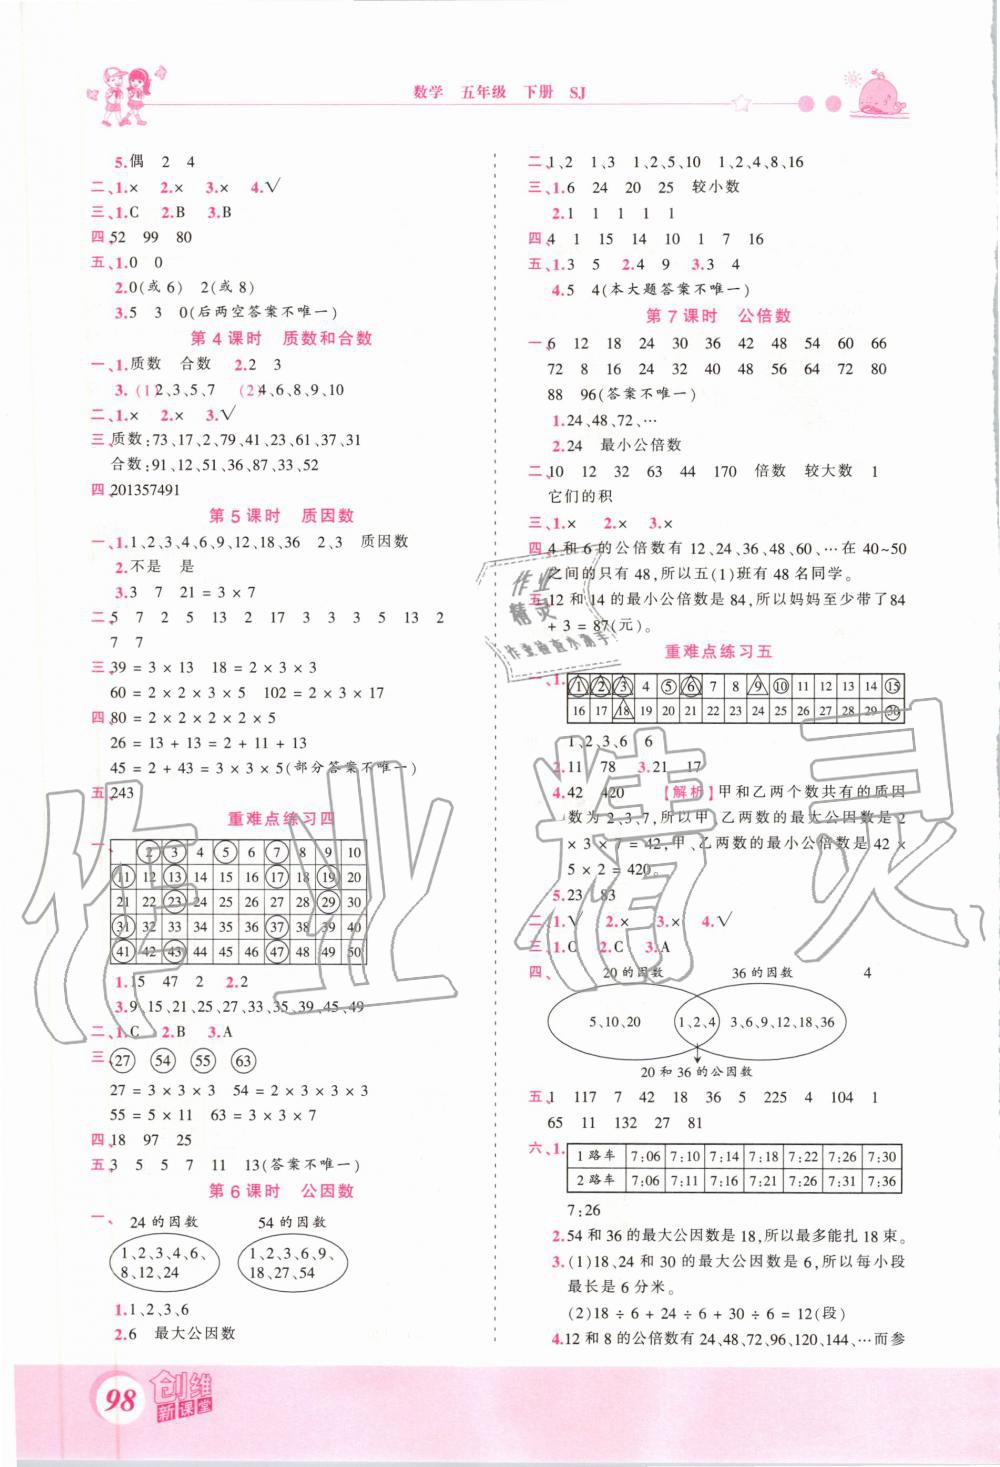 数学 五年级 下册 SJ
5.偶 2 4
二、1.× 2.× 3.× 4.√
三、1.C 2.B 3.B
四、52 99 80
五、1.0 0
2.0(或6) 2(或8)
3.5 3 0(后两空答案不唯一)
第4课时 质数和合数
一、1.质数 合数 2.2 3
3.(1)2、3、5、7 (2)4、6、8、9、10
二、1.× 2.× 3.√
三、质数:73、17、2、79、41、23、61、37、31
合数:91、12、51、36、87、33、52
四、201357491
第5课时 质因数
一、1.1、2、3、4、6、9、12、18、36 2、3 质因数
2.不是 是
3.3 7 21=3×7
二、5 7 2 5 13 2 17 3 3 3 5 13 2
7 7
三、39=3×13 18=2×3×3
60=2×2×3×5 102=2×3×17
四、80=2×2×2×2×5
26=13+13=2+11+13
45=2+43=3×3×5(部分答案不唯一)
五、243
重难点练习四
一、
2 3 4 5 6 7 8 9 10
11 12 13 14 15 16 17 18 19 20
21 22 23 24 25 26 27 28 29 30
31 32 33 34 35 36 37 38 39 40
41 42 43 44 45 46 47 48 49 50
1.15 47 2 2.2
3.9、15、21、25、27、33、35、39、45、49
二、1.C 2.B 3.A
三、27 54 55 63
27=3×3×3 54=2×3×3×3
55=5×11 63=3×3×7
四、18 97 25
五、3 5 5 7 11 13(答案不唯一)
第6课时 公因数
一、 24的因数 54的因数
1、2、3、4、6、 1、2、3、6、9、
8、12、24 18、27、54
1.1、2、3、6
2.6 最大公因数
二、1、2 1、3 1、2、5、10 1、2、4、8、16
三、1.6 24 20 25 较小数
2.1 1 1 1 1
四、4 1 15 14 10 1 7 16
五、1.3 5 2.4 9 3.3 4
4.5 4(本大题答案不唯一)
第7课时 公倍数
一、6 12 18 24 30 36 42 48 54 60 66
72 8 16 24 32 40 48 56 64 72 80
88 96(答案不唯一)
1.24、48、72、…
2.24 最小公倍数
二、10 12 32 63 44 170 倍数 较大数 1
它们的积
三、1.× 2.× 3.×
四、4和6的公倍数有12、24、36、48、60、…在40~50
之间的只有48,所以五(1)班有48名同学。
五、12和14的最小公倍数是84,所以妈妈至少带了84
+3=87(元)。
重难点练习五
一、1.
1 2 3 4 5 6 7 8 9 10 11 12 13 14 15
16 17 18 19 20 21 22 23 24 25 26 27 28 29 30
1、2、3、6 6
2.11 78 3.21 17
4.42 420 【解析】甲和乙两个数共有的质因
数为2、3、7,所以甲、乙两数的最大公因数是2
×3×7=42,甲、乙两数的最小公倍数是42×
5×2=420。
5.23 83
二、1.√ 2.× 3.× 4.√
三、1.C 2.C 3.A
四、 20的因数 36的因数 4
5、10、20 1、2、4 3、6、9、12、18、36
20和36的公因数
五、1 117 7 42 18 36 5 225 4 104 1
65 11 132 27 81
六、1.
1路车 7:06 7:10 7:14 7:18 7:22 7:26 7:30
2路车 7:06 7:11 7:16 7:21 7:26 7:31 7:36
7:26
2.54和36的最大公因数是18,所以最多能扎18束。
3.(1)18、24和30的最大公因数是6,所以每小段
最长是6分米。
(2)18÷6+24÷6+30÷6=12(段)
4.12和8的公倍数有24、48、72、96、120、144、…而参
98
创维
新课堂
作业
精灵
作业检查小助手
作业精灵